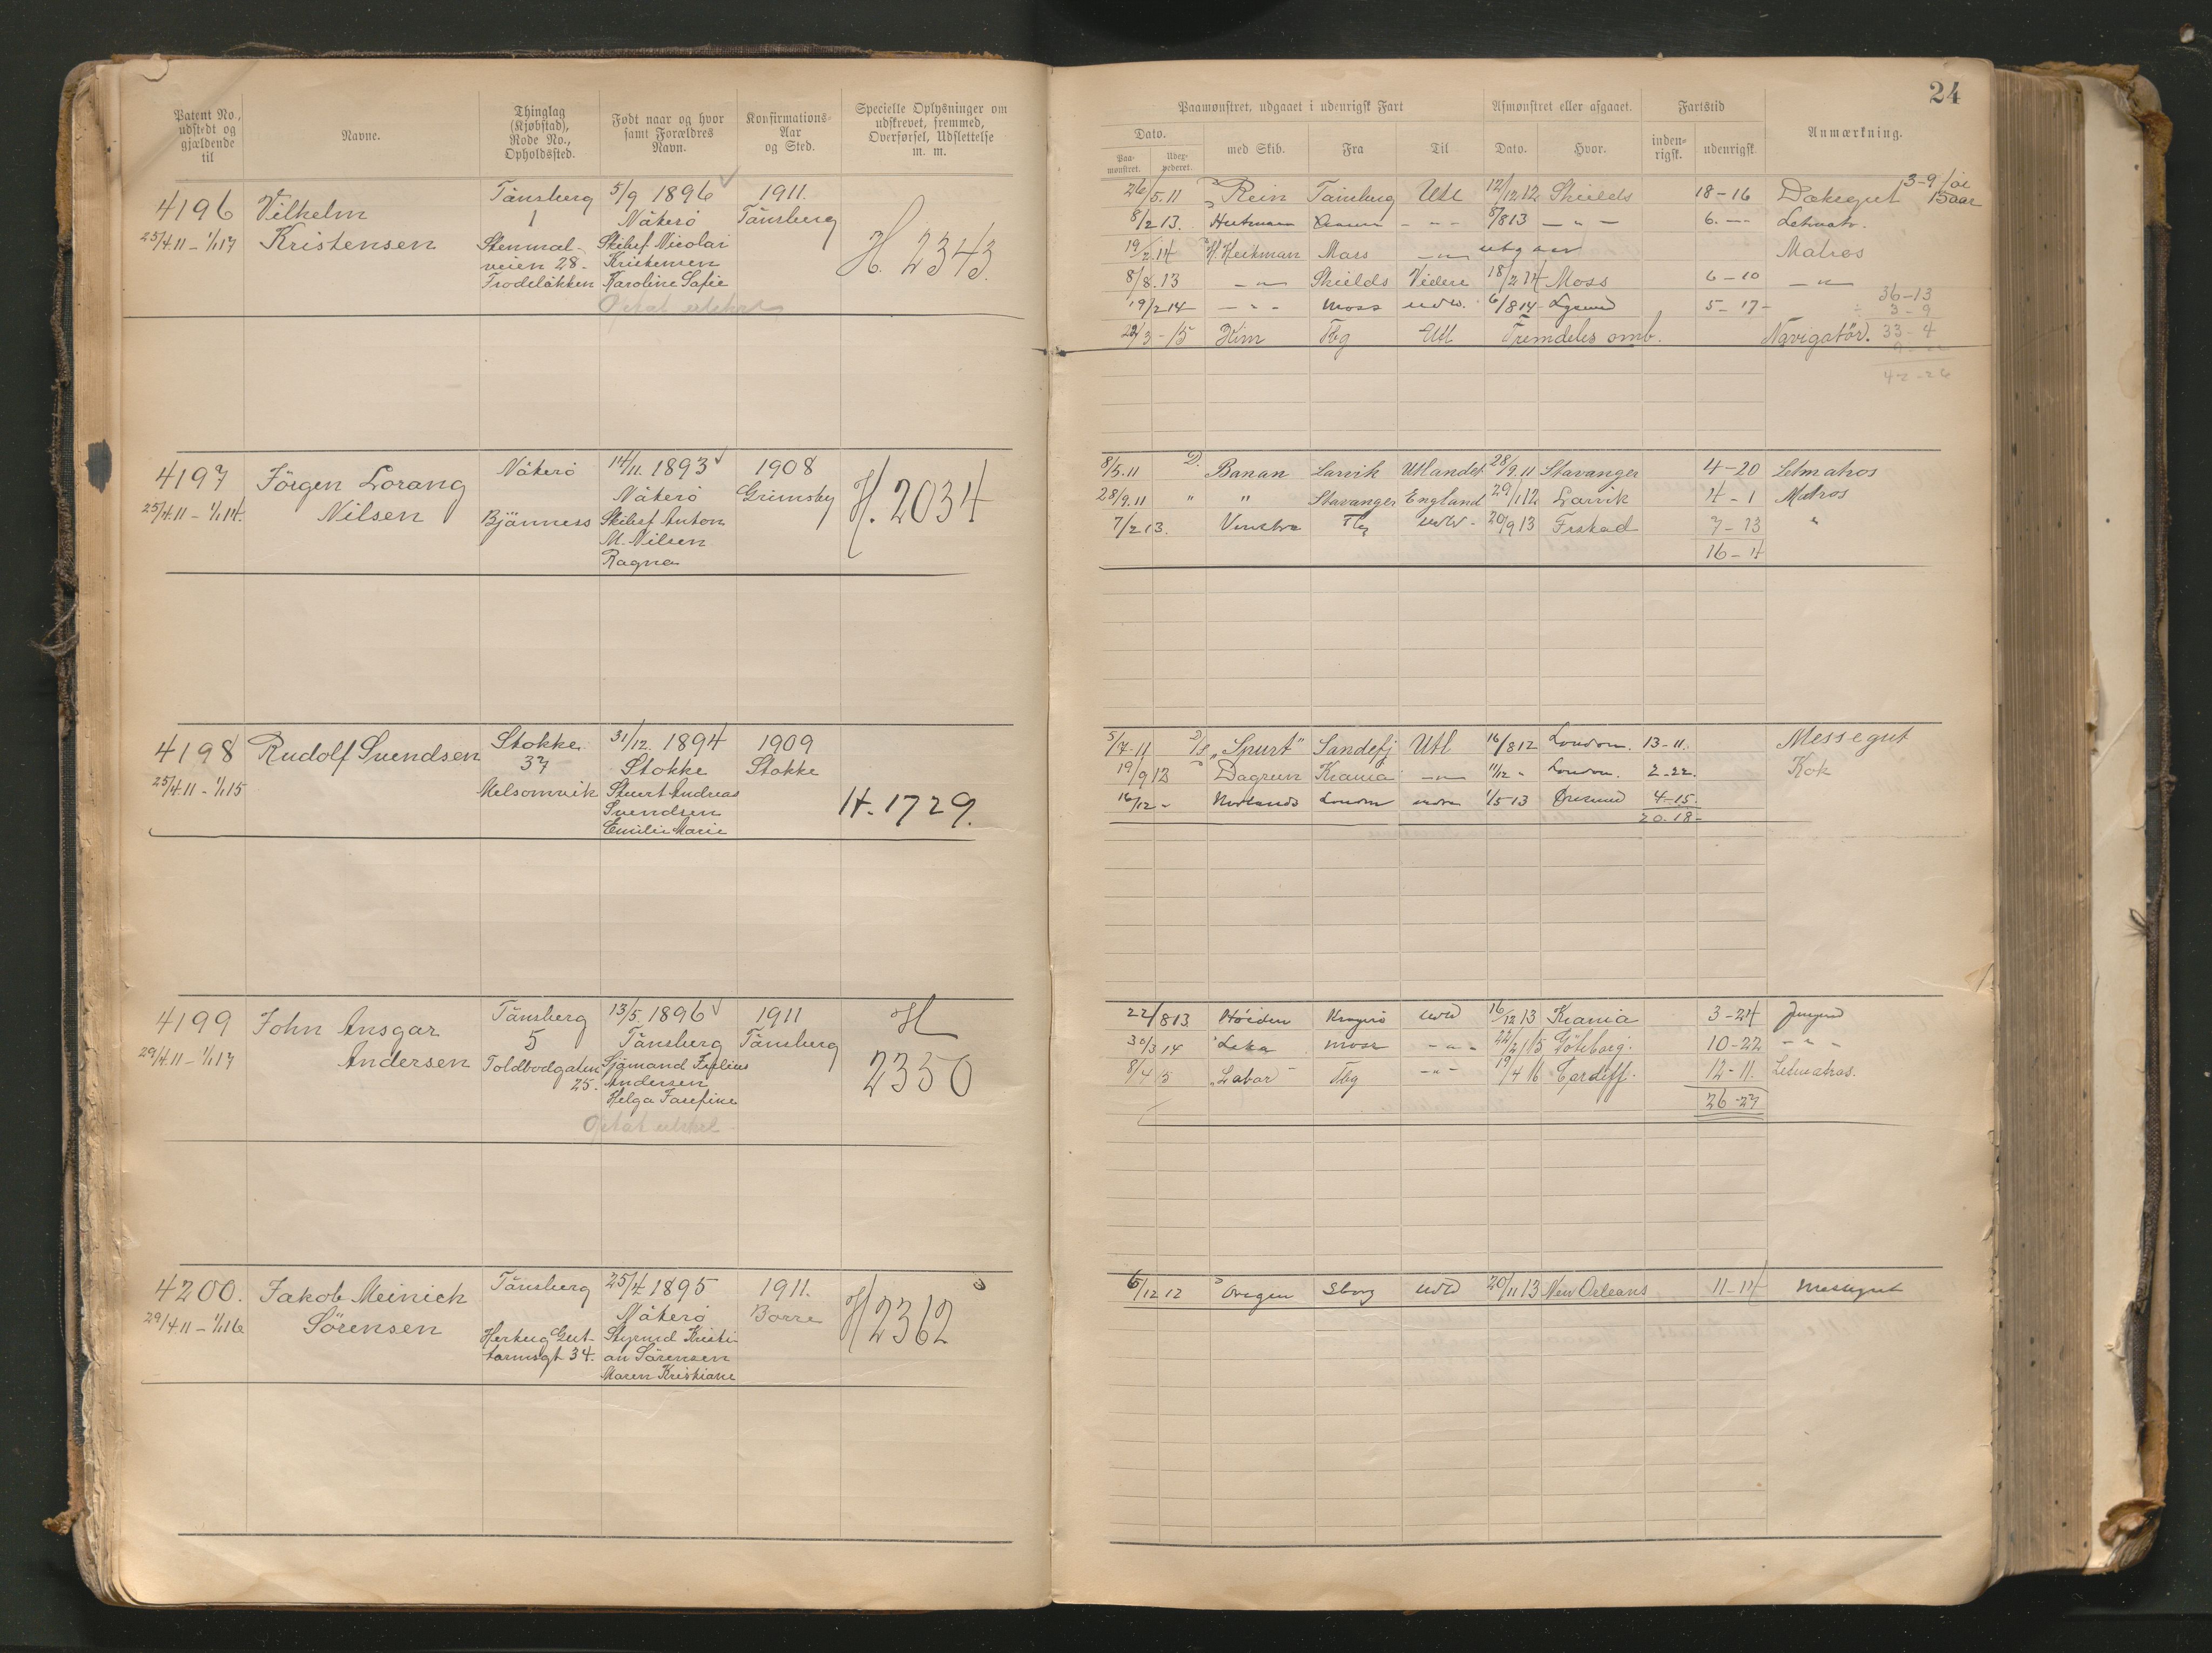 Patent No., udstedt og gjældende til
Navne.
Thinglag (Kjøbstad), Rode No., Opholdssted.
Født naar og hvor samt Forældres Navn.
Konfirmations-Aar og Sted.
Specielle Oplysninger om udskrevet, fremmed, Overførsel, Udslettelse m. m.
4196
25/4.11 – 1/1 17
Vilhelm
Kristensen
Tänsberg
1
Stenmal-
veien 28.
Trodeløkken
5/9 1896
Nøterö
Skibsf. Nicolai
Kristensen
Karoline Sofie
1911.
Tänsberg
H. 2343.
4197
25/4.11 – 1/1 14.
Jörgen Lorang
Nilsen
Nøterö
Bjänness
14/11. 1893
Nøterö
Skibsf Anton
M. Nilsen
Ragna
1908
Grimsby
H. 2034
4198
25/4.11 – 1/1 15
Rudolf Svendsen
Stokke
37
Melsomvik
31/12. 1894
Stokke
Stuert Andreas
Svendsen
Emilie Marie
1909
Stokke
H. 1729.
4199
29/4.11 – 1/1 17
John Ansgar
Andersen
Tänsberg
5
Toldbodgaten
25.
13/5. 1896
Tänsberg
Sjömand
Andersen
Helga Josefine
1911
Tänsberg
H
2350
4200.
29/4.11 – 1/1 16
Jakob Meinich
Sörensen
Tänsberg
Hertug Gut-
tormsgt 34.
25/4. 1895
Nøterö
Styrmd Kristi-
an Sörensen
Maren Kristiane
1911.
Borre
H 2362
24
Paamønstret, udgaaet i udenrigsk Fart
Afmønstret eller afgaaet.
Fartstid
Anmærkning.
Dato.
Paa-mønstret.
Udex-pederet.
med Skib.
Fra
Til
Dato.
Hvor.
inden-rigsk.
udenrigsk
26/5.11 Rein Tänsberg Utl 12/12 12 Shields 18-16 Däksgut 3-9 15 aar
8/2 13. - - - 8/8 13 - " - 6. -- Letmatr.
19/2.14 H. Heitman Moss - " - Matros
8/8.13 - " - Shields Videre 18/2 14 Moss 6-10 - " -
36-13
19/2 14 - " - Moss udl. 6/8 14 5-17-
3-9
3-15 Kim Tbg Utl Fremdeles omb. Navigatör. 33-4
42-26
8/5.11 D. Banan Larvik Utlandet 28/9.11 Stavanger 4-20 Letmatros
28/9.11 " " Stavanger England 29/1 12 Larvik 4-1 Matros
7/2 13. Tbg udl. 20/9 13 Frstad 7-13 "
16-4
5/7-11 D/S "Spurt" Sandefj Utl 16/8 12 London. 13-11. Messegut
19/9 12 Dagrun Krania - " - 11/12 - London. 2-22. Kok
16/12 - London 1/5 13 4-15.
20.18-
22/8 13. Kragerö udld 16/12 13 Krania 3-24 Jungmd
30/3 14 Leka Moss - " - 22/2 15 Göteborg. 10-22 - " -
8/4 15 "Labor" Tbg - " - 19/4 16 Cardiff. 12-11. Letmatros.
26-27
6/12 12 Oregon Sborg udld 20/11 13 New Orleans 11-14 Messegut